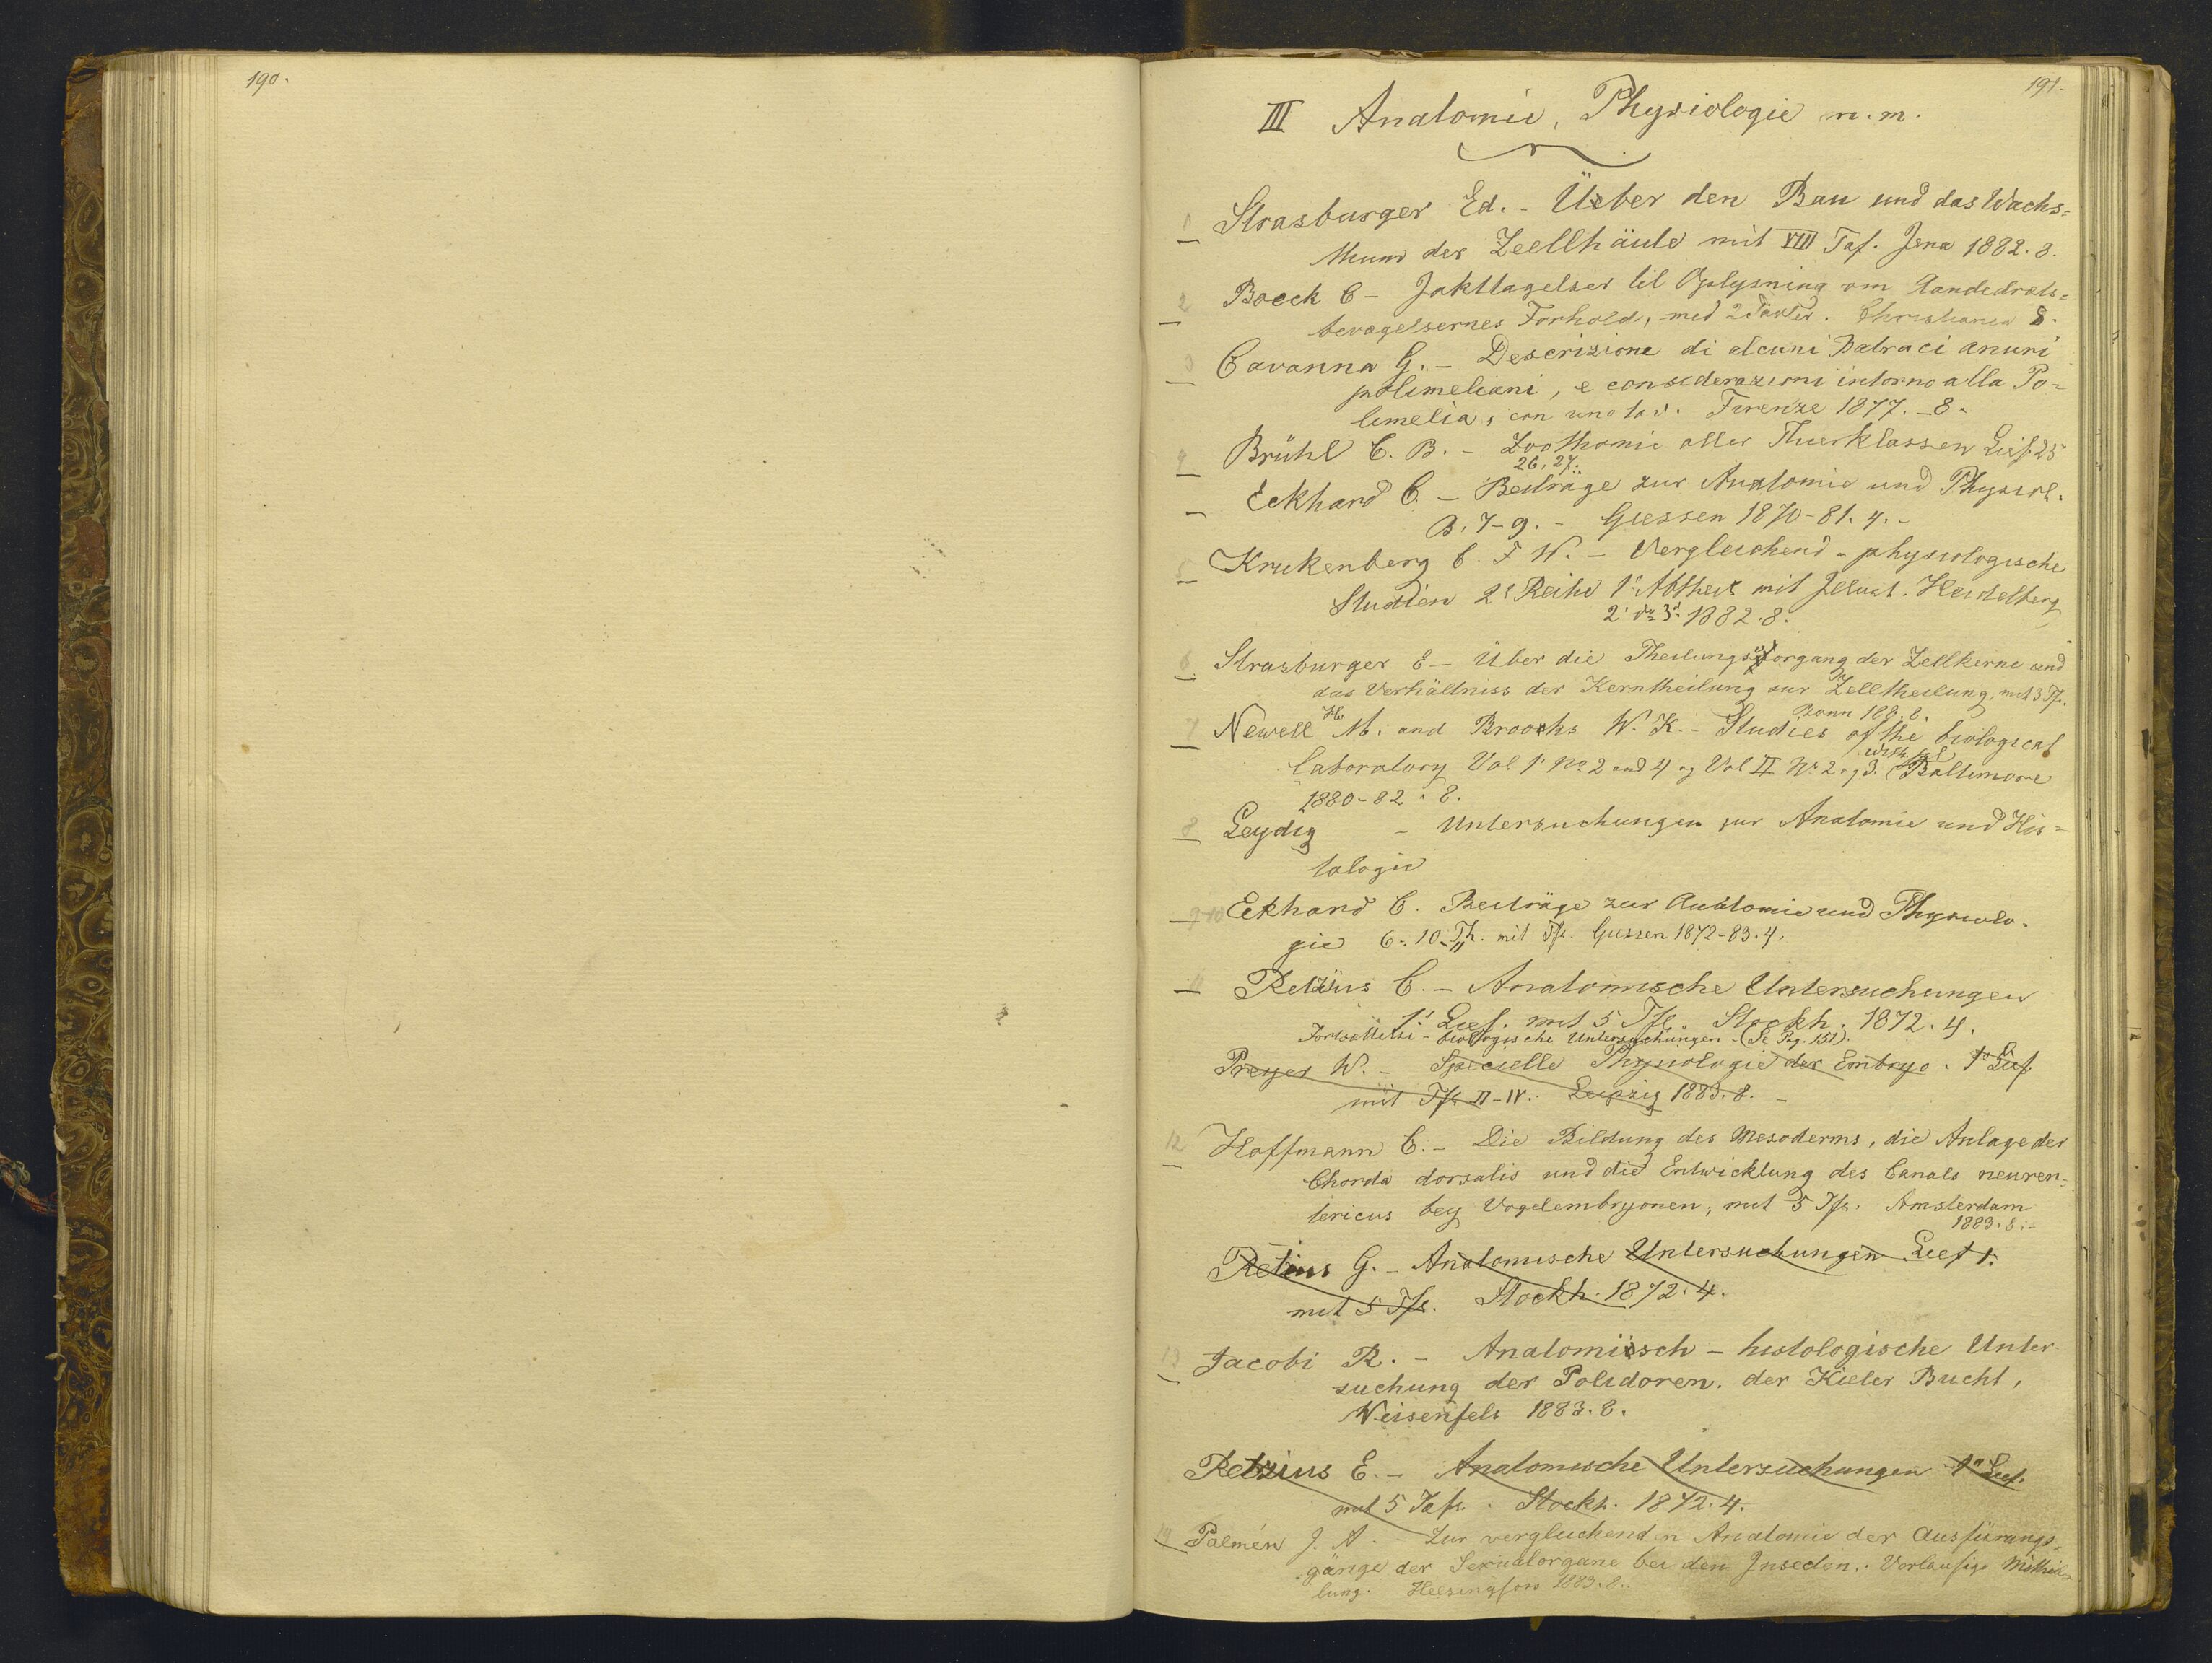 190.
191.
III Anatomie, Physiologie m. m.
1 Strasburger Ed. - Ueber den Bau und das Wachs=
thum der Zellhäute mit VIII Taf. Jena 1882. 8.
2 Boeck C - Jakttagelser til Oplysning om Aandedræts=
bevægelsernes Forhold, med 2 Tavler. Christiania 8.
3 Cavanna G. - Descrizione di alcuni Batraci anuri
polimeliani, e considerazioni intorno alla Po=
limelia, con una tav. Firenze 1877. - 8.
4 Brühl C. B. - Zoothomie aller Thierklassen Lief 25
26, 27.
Eckhard C. - Beiträge zur Anatomie und Physiol.
B. 7-9. - Giessen 1870-81. 4. -
5 Krukenberg C. F W. - Vergleichend - physiologische
Studien 2e Reihe 1e Abtheil mit Heidelberg
2. do 3. 1882. 8.
6 Strasburger E - Über die Theilungsvorgang der Zellkerne und
das Verhältniss der Kerntheilung zur Zelltheilung, mit 3 Tf.
Bonn 188. 8.
7 Newell H. M. and Broocks W. K. - Studies of the biological
laboratory Vol 1 No 2 and 4 og Vol II No 2 og 3. with pl. Baltimore
1880-82. 8.
8 Leydig - Untersuchungen zur Anatomie und His=
tologie
9-10 Eckhard C. Beiträge zur Anatomie und Physiolo-
gie 6-10 Th. mit Tfl. Giessen 1872-83. 4.
11 Retzius C. - Anatomische Untersuchungen
1e Lief. mit 5 Tfl. Stockh. 1872. 4.
Fortsættelse - biologische Untersuchungen - (Se Pag. 151).
Preyer W. - Specielle Physiologie der Embryo. 1e Lief
mit Tfl. II-IV. Leipzig 1883. 8. -
12 Hoffmann C. - Die Bildung des Mesoderms, die Anlage der
Chorda dorsalis und die Entwicklung des Canals neuren=
tericus bey Vogelembryonen, mit 5 Tfl. Amsterdam
1883. 8. -
Retzius G. - Anatomische Untersuchungen Lief 1.
mit 5 Tfl. Stockh. 1872. 4.
13 Jacobi R. - Anatomisch - histologische Unter-
suchung der Polidoren. der Kieler Bucht,
Weisenfels 1883. 8.
Retzius E. - Anatomische Untersuchungen 1e Lief.
mit 5 Tafl. Stockh. 1872. 4.
14 Palmén J. A - Zur vergleichenden Anatomie der Ausfürungs=
gänge der Sexualorgane bei den Insecten. Vorläufige Mitthei=
lung. Helsingfors 1883. 8.